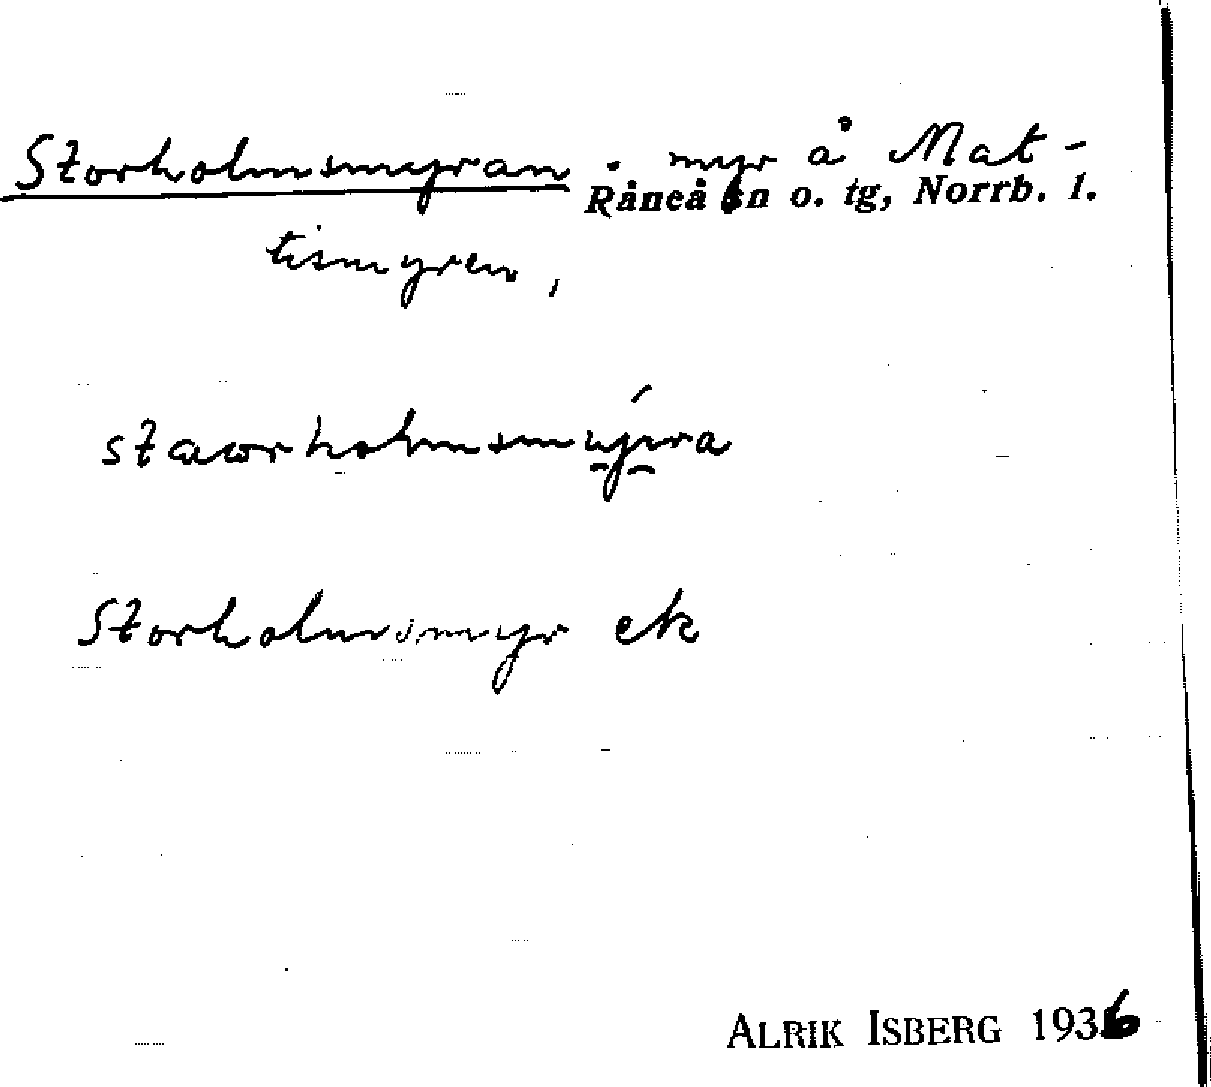 Storholmsmyran. myr å Mat-
Råneå sn o. tg, Norrb. l.
tismyren,
Storholmsmyr ek
ALRIK ISBERG 1936